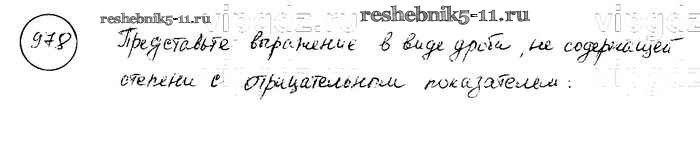 reshebnik5-11.ru
978 Представьте выражение в виде дроби, не содержащей
степени с отрицательным показателем:
reshebnik5-11.ru